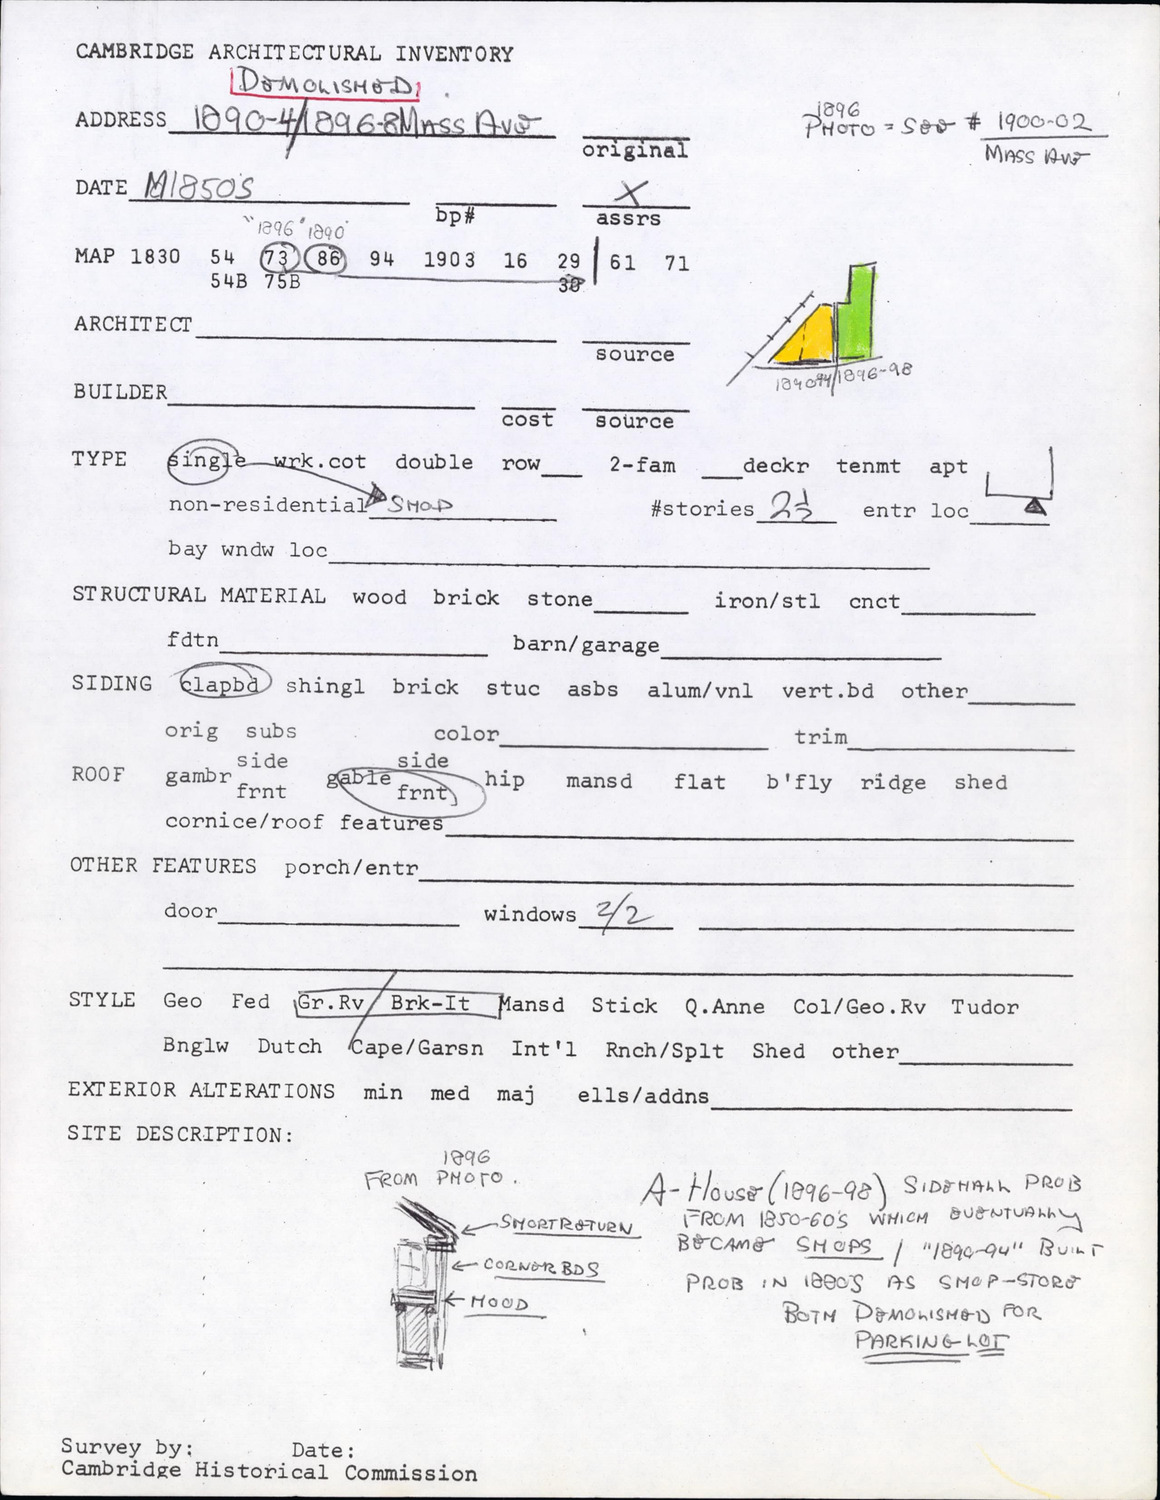 CAMBRIDGE ARCHITECTURAL INVENTORY
DEMOLISHED
ADDRESS 1890-4/1896-8 MASS AVE
original
1896
PHOTO = SEE # 1900-02
MASS AVE
DATE M1850'S
bp#
X
assrs
"1896" 1890
MAP 1830 54 73 86 94 1903 16 29 61 71
54B 75B 30
ARCHITECT
source
1890-94/1896-98
BUILDER
cost source
TYPE single wrk.cot double row 2-fam deckr tenmt apt
non-residential SHOP #stories 2½ entr loc
bay wndw loc
STRUCTURAL MATERIAL wood brick stone iron/stl cnct
fdtn barn/garage
SIDING clapbd shingl brick stuc asbs alum/vnl vert.bd other
orig subs color trim
side side
ROOF gambr gable hip mansd flat b'fly ridge shed
frnt frnt
cornice/roof features
OTHER FEATURES porch/entr
door windows 2/2
STYLE Geo Fed Gr.Rv/Brk-It Mansd Stick Q.Anne Col/Geo.Rv Tudor
Bnglw Dutch Cape/Garsn Int'l Rnch/Splt Shed other
EXTERIOR ALTERATIONS min med maj ells/addns
SITE DESCRIPTION:
1896
FROM PHOTO.
SHORT RETURN
CORNER BDS
HOOD
A-HOUSE (1896-98) SIDEHALL PROB
FROM 1850-60'S WHICH EVENTUALLY
BECAME SHOPS / "1890-94" BUILT
PROB IN 1880'S AS SHOP-STORE
BOTH DEMOLISHED FOR
PARKING LOT
Survey by: Date:
Cambridge Historical Commission